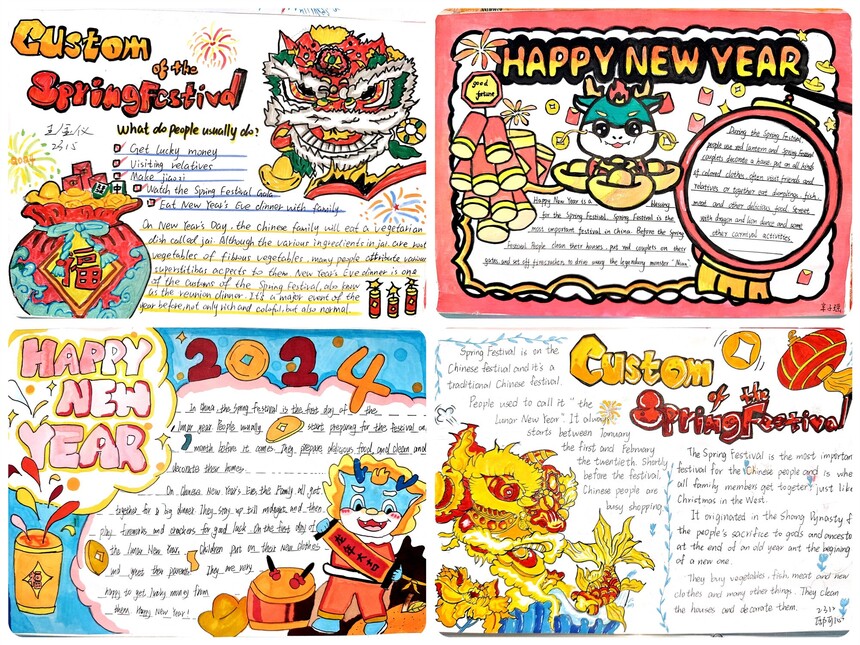 Custom
of the
Spring Festival
What do people usually do?
2315
Get Lucky money
Visiting relatives
Make jiaozi
Watch the Spring Festival Gala
Eat New Year's Eve dinner with family
福
中
On New Year's Day, the chinese family will eat a vegetarian
dish called jai. Although the various ingredients in jai, are root
vegetables of fibous vegetables. many people attribute various
superstitibas acpects to them. New Year's Eve dinner is one
of the customs of the Spring Festival, also know
as the reunion dinner. It's a major event of the
year before, not only rich and coloful, but also normal.
HAPPY NEW YEAR
good
fortune
Happy New Year is a blessing
for the Spring Festival. Spring Festival is the
most important festival in China. Before the Spring
Festival People clean their houses, put red couplets on their
gates, and set off firecrackers, to drive away the legendary monster "Nian"
During the Spring Festival,
people use red lantern and Spring Festival
couplets decorate a house, put on all kind
of colored clothes, often visit friends and
relatives or together eat dumplings, fish,
meat and other delicious food. Street
with dragon and lion dance and some
other carnival activities.
HAPPY
NEW
YEAR
2024
In China, the Spring Festival is the first day of the
lunar year. People usually start preparing for the festival on
month before it comes. They prepare delicious food, and clean and
decorate their homes.
On Chinese New Year's Eve, the Family all get
together for a big dinner. They stay up till midnight, and then
play fireworks and crackers for good luck. On the first day of
the lunar New Year, Children put on their new clothes
and greet their parents. They are very
happy to get lucky money from
them. Happy New Year!
Spring Festival is on the
Chinese festival and it's a
traditional Chinese festival.
People used to call it "the
Lunar New Year". It always
starts between January
the first and February
the twentieth. Shortly
before the festival,
Chinese people are
busy shopping.
Custom
of the
Spring Festival
The Spring Festival is the most important
festival for the Chinese people and is when
all family members get togeter, just like
Christmas in the West.
It originated in the Shang Dynasty f
the people's sacrifice to gods and ancesto
at the end of an old year ant the begining
of a new one.
They buy vegetables, fish meat and new
clothes and many other things. They clean
the houses and decorate them.